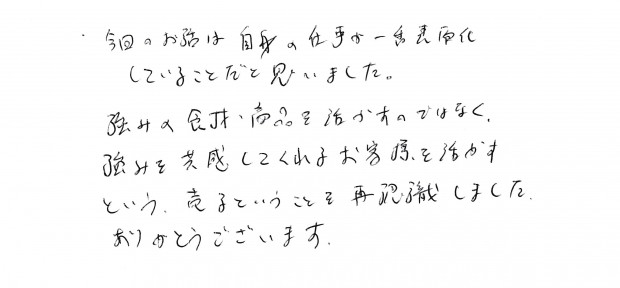 ・今回のお話は自身の仕事が一番表面化
していることだと思いました。
強みの食材・商品を活かすのではなく、
強みを共感してくれるお客様を活かす
という、売るということを再認識しました。
ありがとうございます。